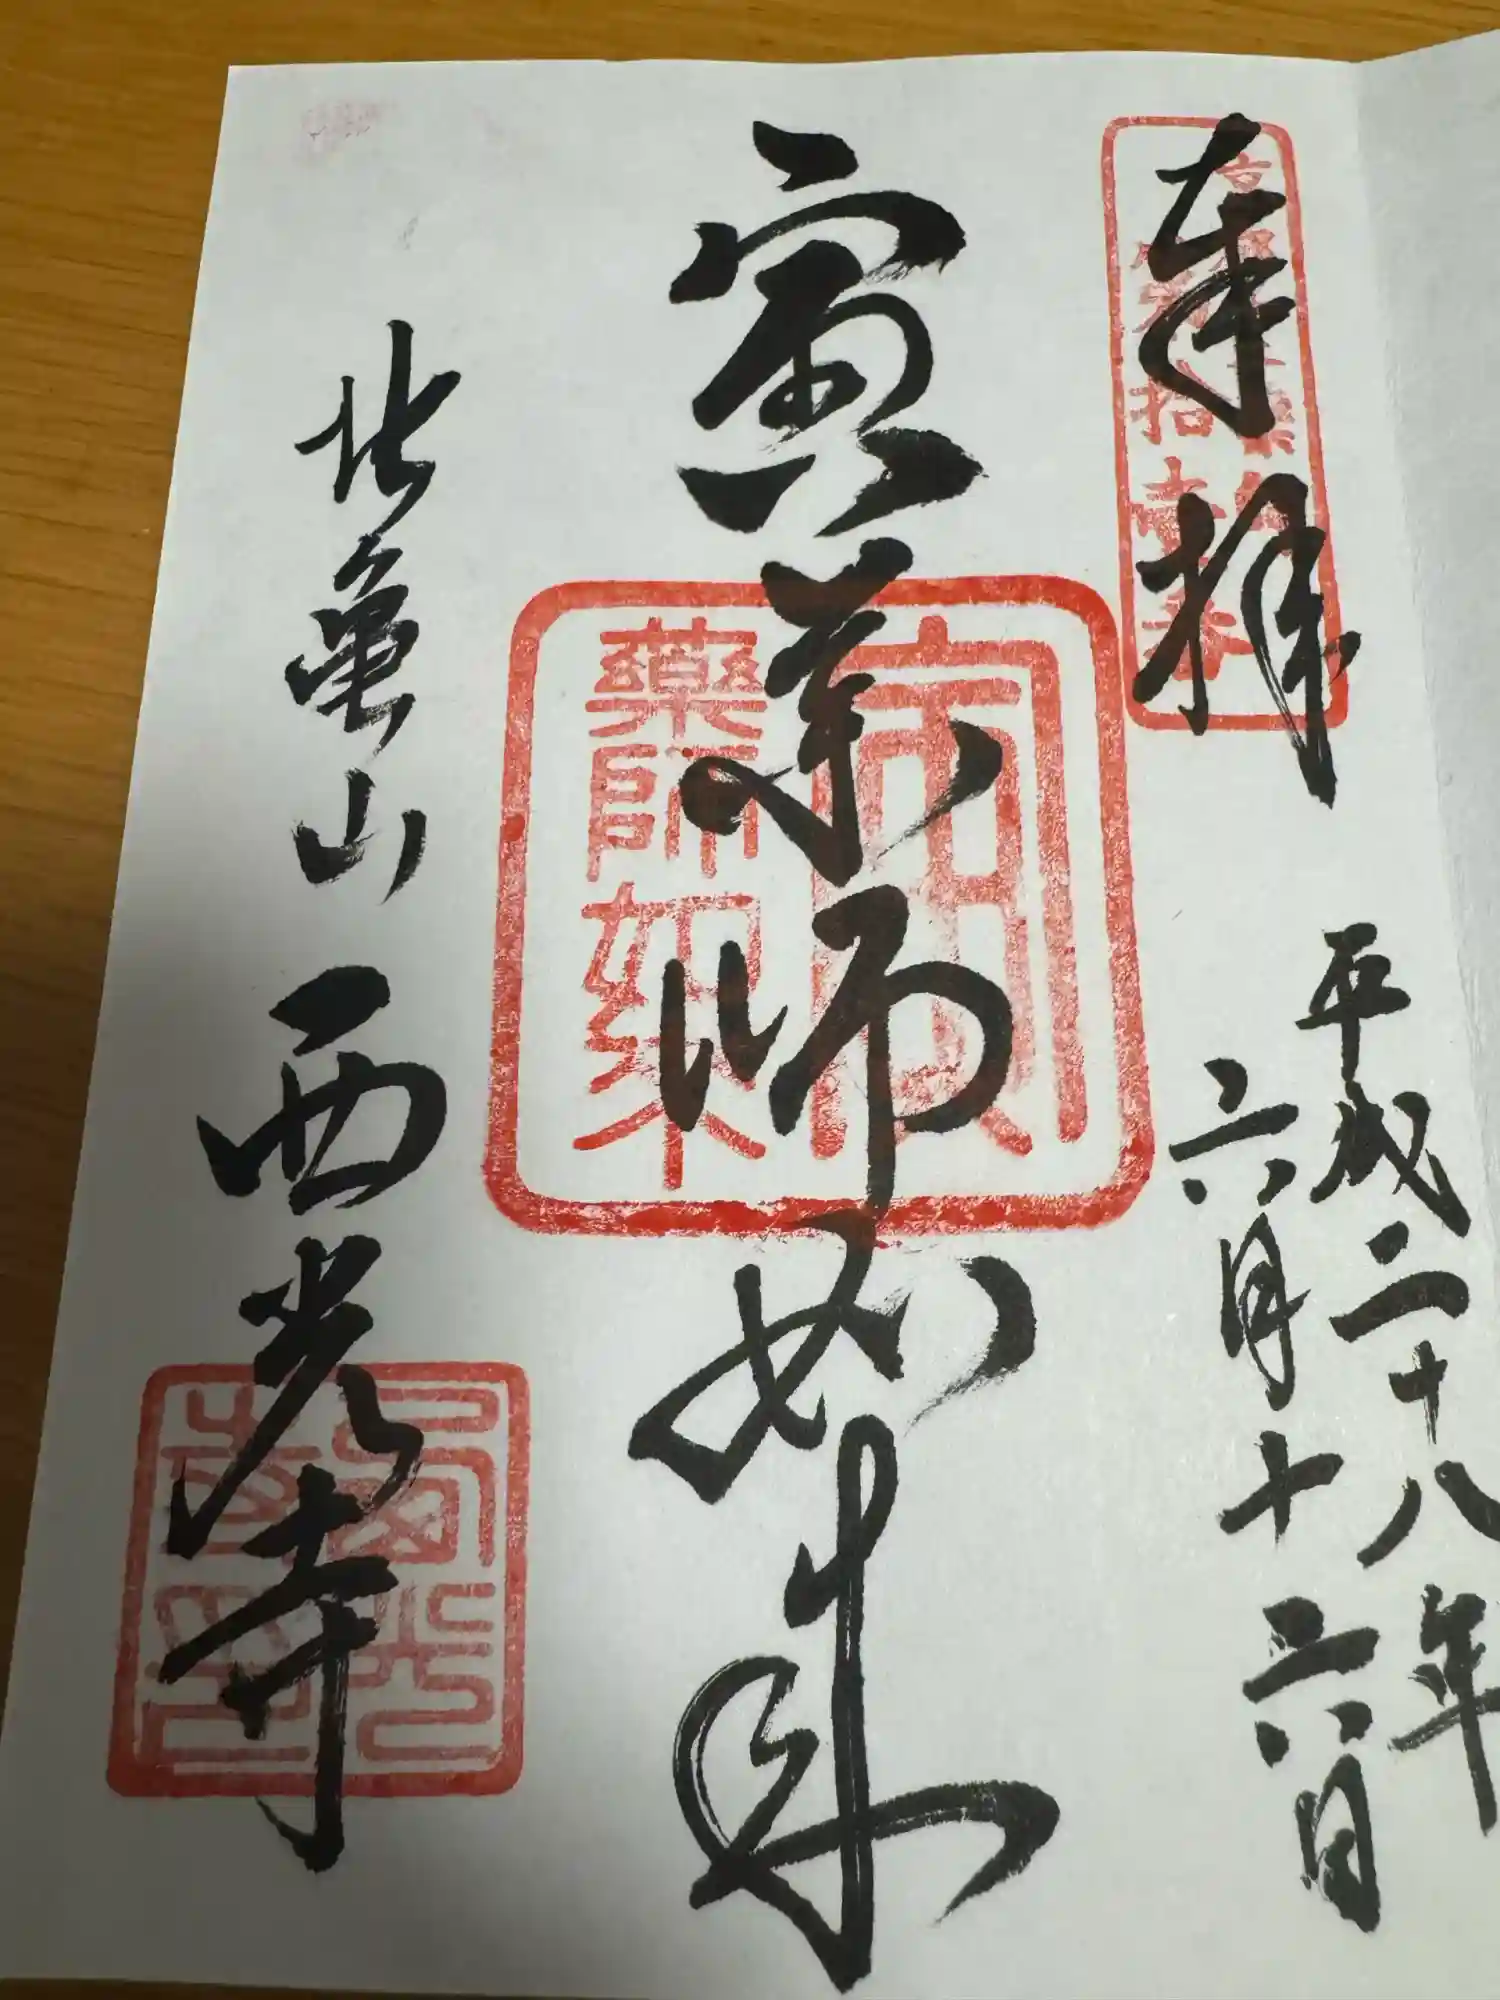 奉拝
平成二十八年
六月十六日
寅薬師如来
寅
薬師如来
北亀山
西光寺